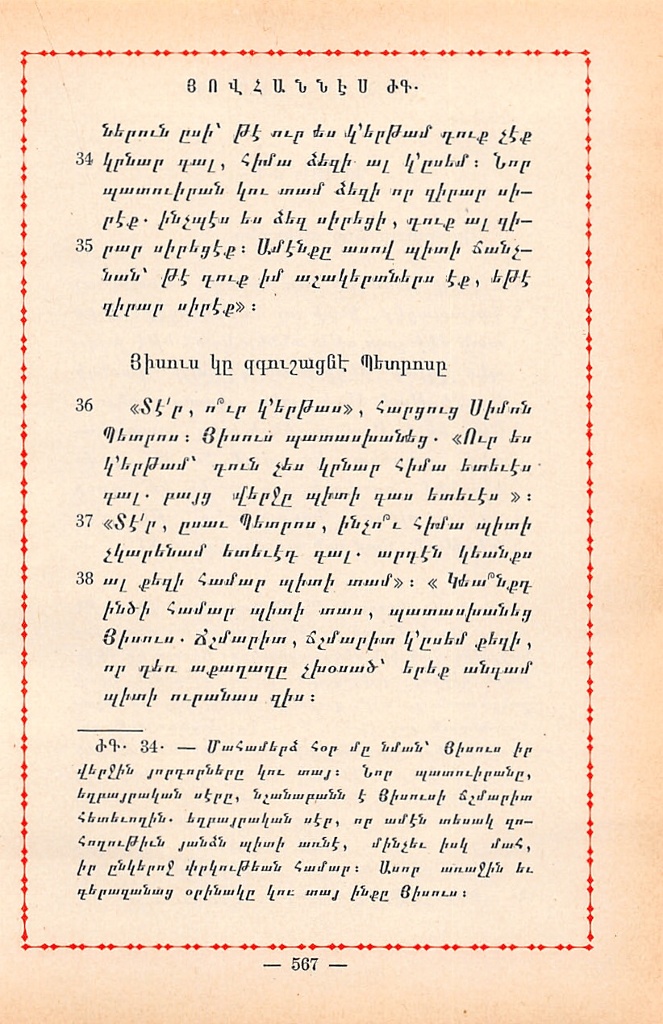 ՅՈՎՀԱՆՆԷՍ ԺԳ.
ներուն ըսի՝ թէ ուր ես կ՚երթամ դուք չէք
34 կրնար գալ, հիմա ձեզի ալ կ՚ըսեմ։ Նոր
պատուիրան կու տամ ձեզի որ զիրար սի—
րէք. ինչպէս ես ձեզ սիրեցի, դուք ալ զի—
35 րար սիրեցէք։ Ամէնքը ասով պիտի ճանչ—
նան՝ թէ դուք իմ աշակերտներս էք, եթէ
զիրար սիրէք»։
Յիսուս կը զգուշացնէ Պետրոսը
36 «Տէ՛ր, ո՞ւր կ՚երթաս», հարցուց Սիմոն
Պետրոս։ Յիսուս պատասխանեց. «Ուր ես
կ՚երթամ՝ դուն չես կրնար հիմա ետեւէս
գալ. բայց վերջը պիտի գաս ետեւէս »։
37 «Տէ՛ր, ըսաւ Պետրոս, ինչո՞ւ հիմա պիտի
չկարենամ ետեւէդ գալ. արդէն կեանքս
38 ալ քեզի համար պիտի տամ»։ « Կեա՞նքդ
ինծի համար պիտի տաս, պատասխանեց
Յիսուս. Ճշմարիտ, ճշմարիտ կ՚ըսեմ քեզի,
որ դեռ աքաղաղը չխօսած՝ երեք անգամ
պիտի ուրանաս զիս։
ԺԳ. 34. — Մահամերձ հօր մը նման՝ Յիսուս իր
վերջին յորդորները կու տայ։ Նոր պատուիրանը,
եղբայրական սէրը, նշանաբանն է Յիսուսի ճշմարիտ
հետեւողին. եղբայրական սէր, որ ամէն տեսակ զո—
հողութիւն յանձն պիտի առնէ, մինչեւ իսկ մահ,
իր ընկերոջ փրկութեան համար։ Ասոր առաջին եւ
գերազանց օրինակը կու տայ ինքը Յիսուս։
— 567 —